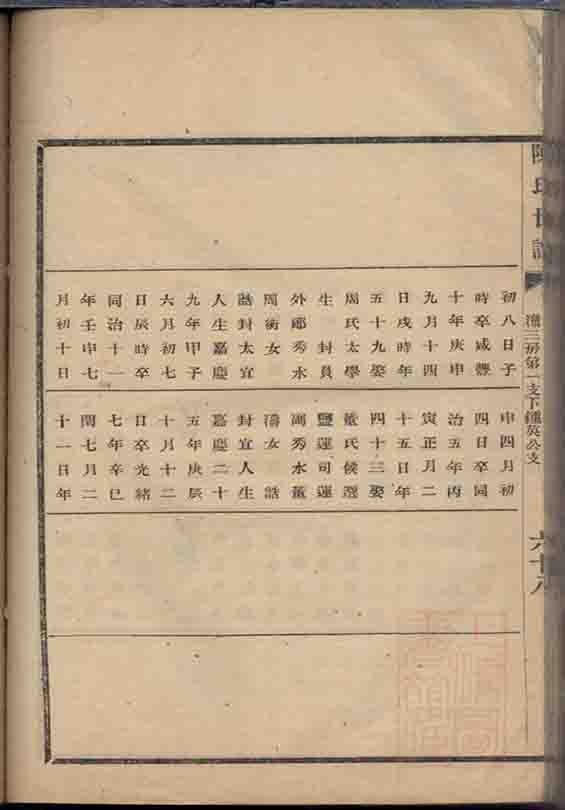 陳氏世譜
三房第一支下鍾英公支
六十八
初八日子
時卒咸豐
十年庚申
九月十四
日戌時年
五十九娶
周氏太學
生　封員
外郎秀水
周術女
誥封太宜
人生嘉慶
九年甲子
六月初七
日辰時卒
同治十一
年壬申七
月初十日
申四月初
四日卒同
治五年丙
寅正月二
十五日年
四十三娶
董氏候選
鹽運司運
副秀水董
濤女　誥
封宜人生
嘉慶二十
五年庚辰
十月十二
日卒光緒
七年辛巳
閏七月二
十一日年